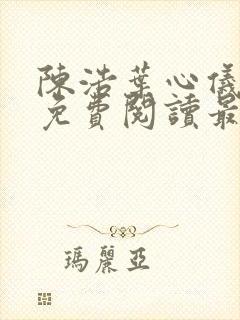 陳浩葉心儀
免費閱讀最
瑪麗亞